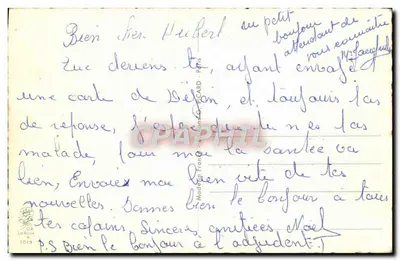 Bien cher Hubert
un petit
bonjour
attendant de
vous connaitre
Que deviens tu, ayant envoyé
une carte de Dijon, et toujours pas
de réponse, j'espère que tu n'es pas
malade, pour moi la santée va
bien, Envoies moi bien vite de tes
nouvelles. Donnes bien le bonjour à tous
tes copains. Sincères amitiées Noel
P.S Bien le bonjour à l'adjudent.
CPARAMA